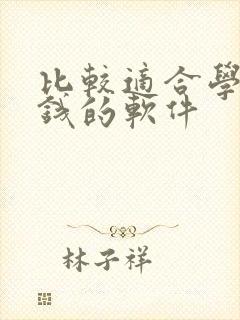 比較適合學
錢的軟件
林子祥